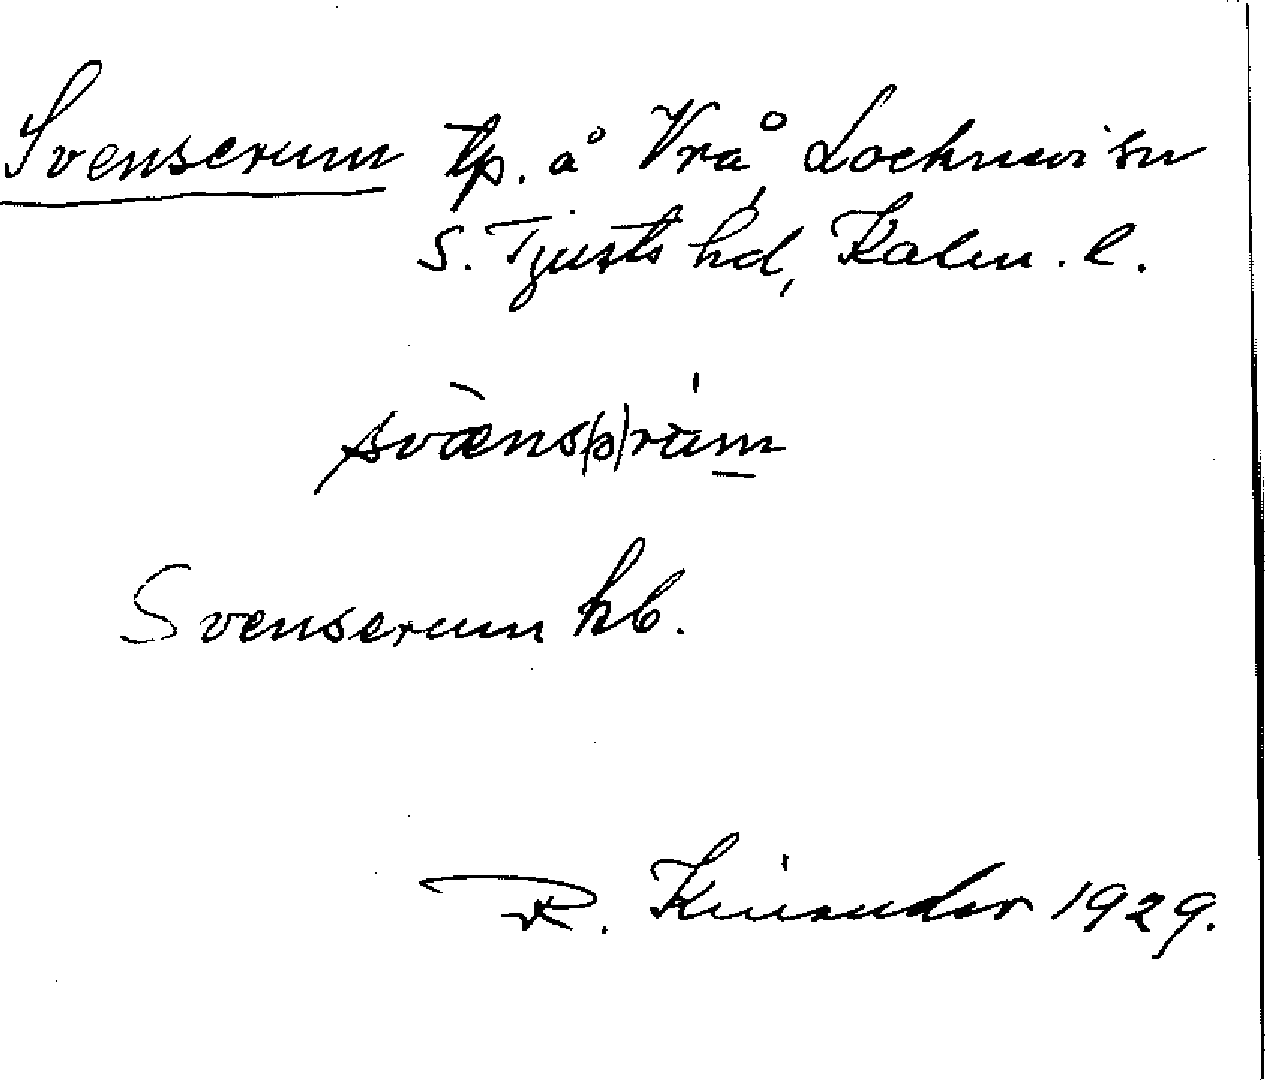 Svenserum tp. å Vrå, Locknevi sn
S. Tjusts hd, Kalm. l.
svæ̀ns(ə)rúm
Svenserum hb.
R. Kinander 1929.